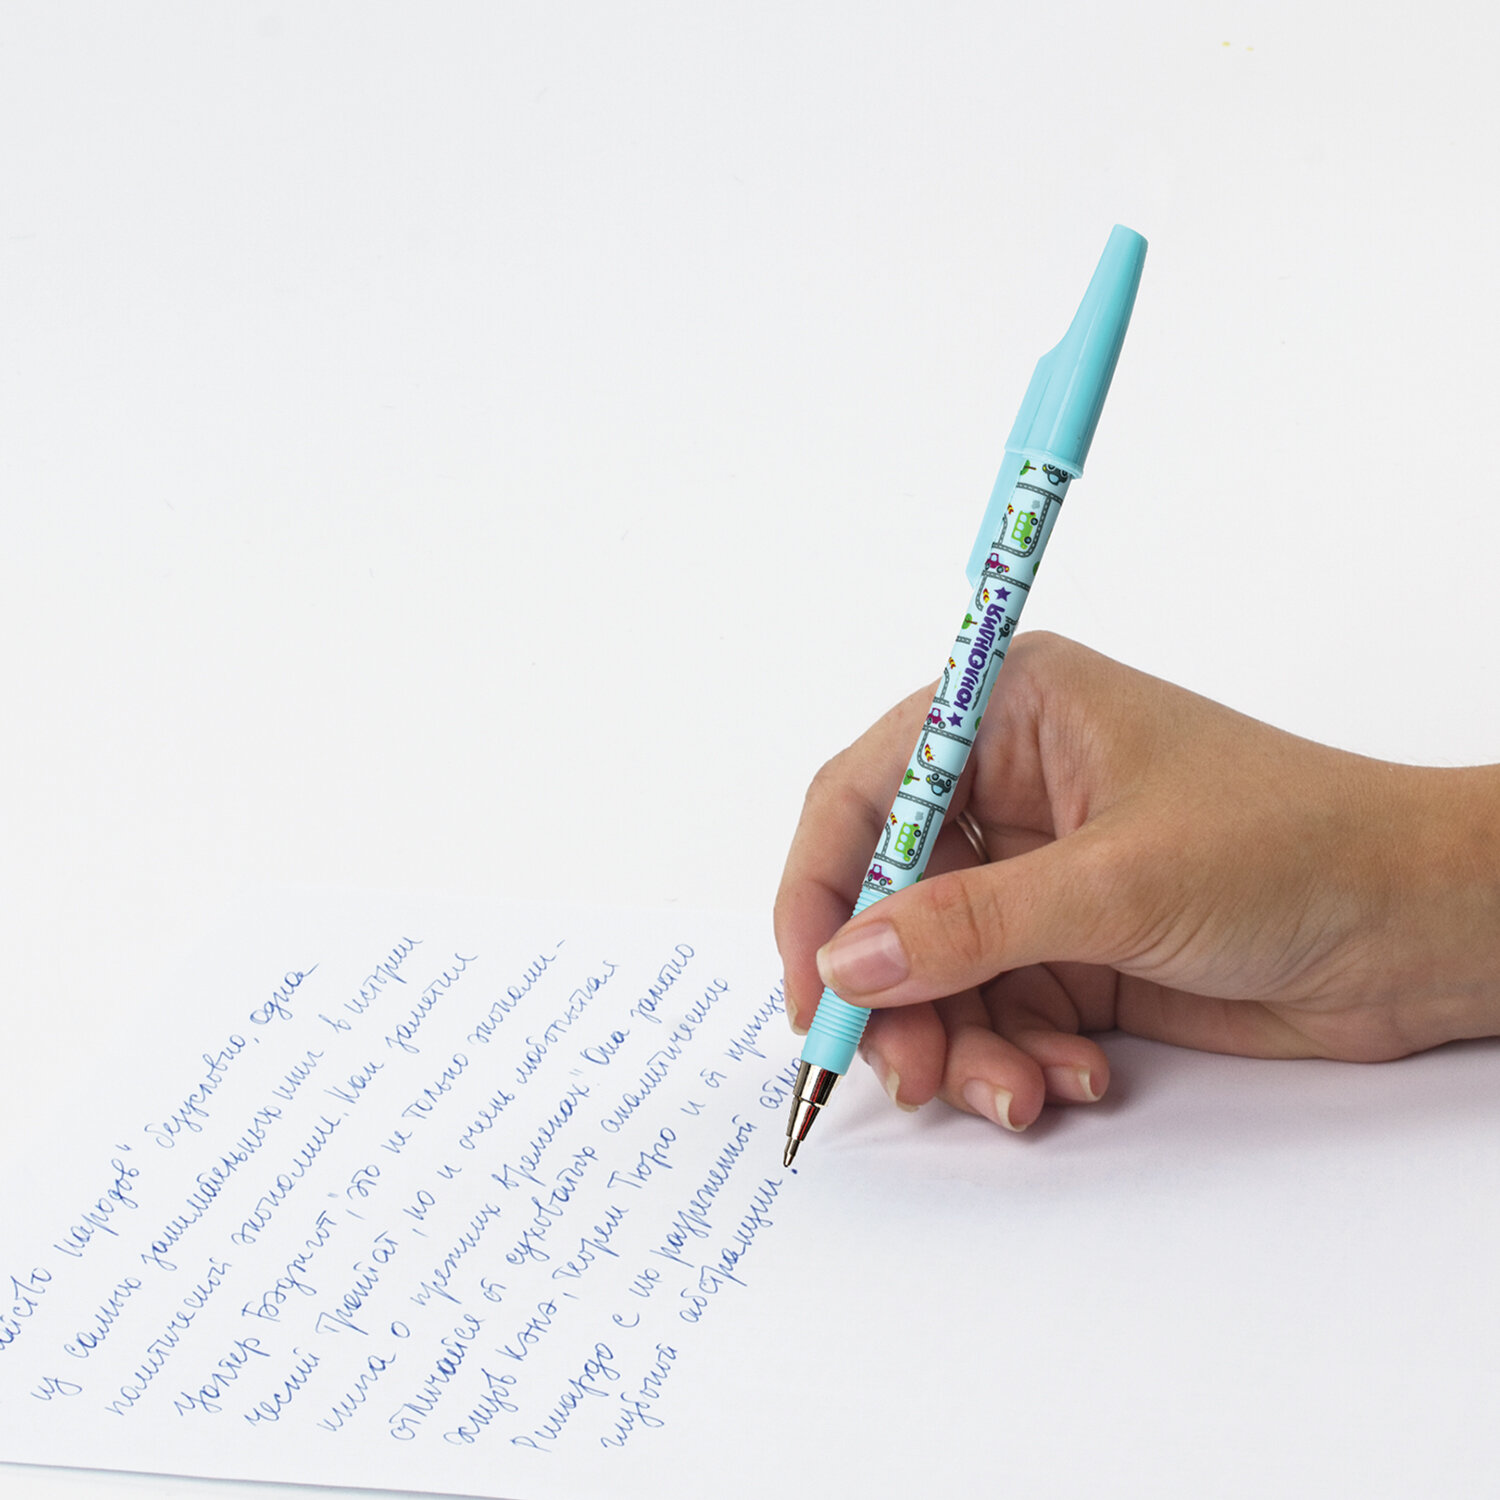 ЮНЛАНДИЯ
народов" безусловно, одна
из самых занимательных книг в истории
политической экономии. Как заметил
Уолтер Бэджгот, "это не только экономи-
ческий трактат, но и очень любопытная
книга о прежних временах". Она заметно
отличается от суховатых аналитических
экскурсов Кэнэ, теорем Тюрго и от
Рикардо с их разреженной
глубокой абстракции.